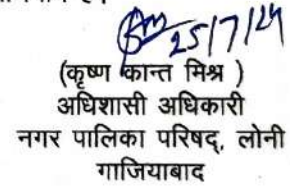 25/7/24
(कृष्ण कान्त मिश्र )
अधिशासी अधिकारी
नगर पालिका परिषद्, लोनी
गाजियाबाद